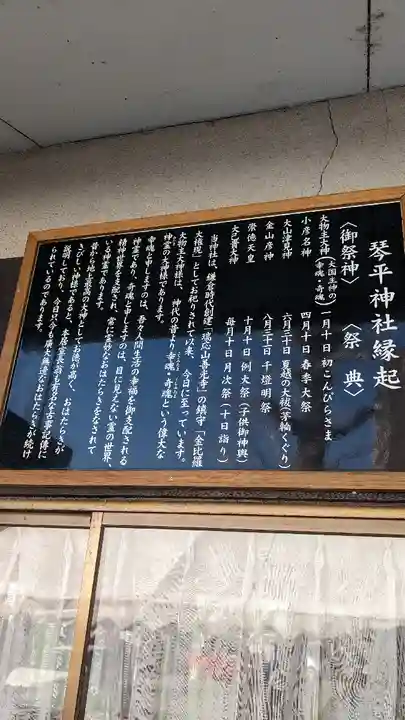 琴平神社縁起
〈御祭神〉 〈祭典〉
大物主大神(大国主神の幸魂・奇魂) 一月十日 初こんぴらさま
小彦名神 四月十日 春季大祭
大山津見神 六月三十日 夏越の大祓(茅輪くぐり)
金山彦神 八月三十日 千燈明祭
崇徳天皇 十月十日 例大祭(子供御神輿)
大己貴大神 毎月十日 月次祭(十日詣り)
当神社は、鎌倉時代創建「瑞応山善光寺」の鎮守「金比羅
大権現」としてお祀りされて以来、今日に至っています。
大物主大神様は、神代の昔より幸魂・奇魂という偉大な
神霊の大神様であります。
幸魂と申しますのは、吾々人間生活の幸福を御支配される
神霊であり、奇魂と申しますのは、目に見えない霊の世界、
精神世界を支配され、常に霊妙なおはたらきをなされて
いる神霊であります。
昔から地上最高の大神としてお徳が高く、おはたらきが
きびしい神様であると、本居宣長翁も有名な古事記傳に
説明しており、今日只今も廣大無辺なおはたらきが続け
られているのであります。